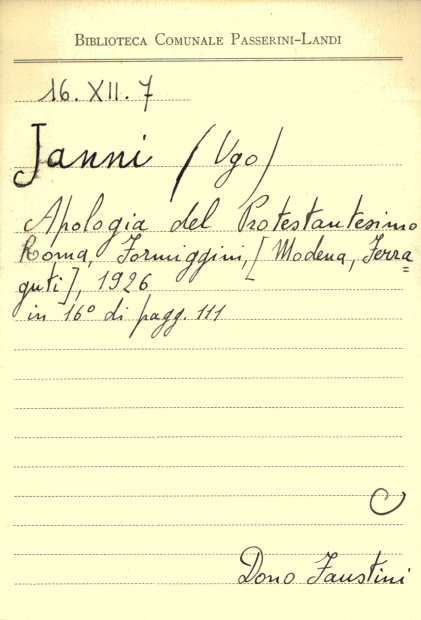 BIBLIOTECA COMUNALE PASSERINI-LANDI
16. XII. 7
Janni (Ugo)
Apologia del Protestantesimo
Roma, Formiggini, [Modena, Ferra=
guti], 1926
in 16° di pagg. 111
C
Dono Faustini